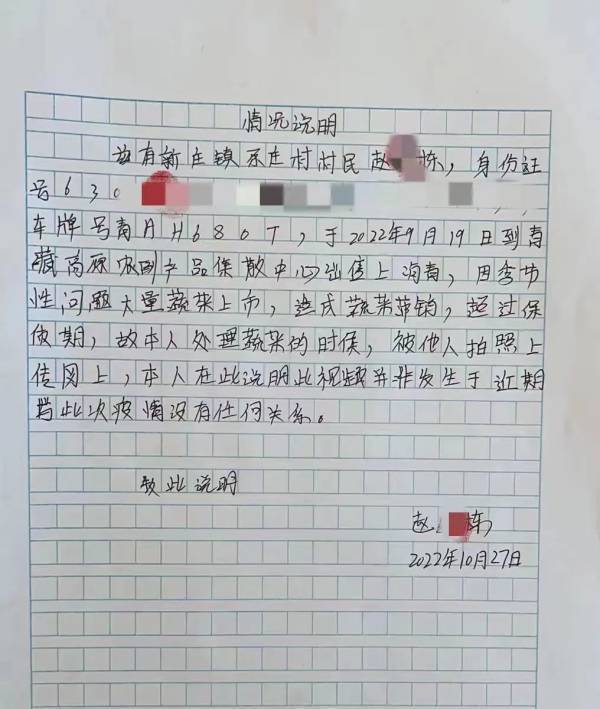 情况说明
兹有新庄镇不庄村村民赵 栋，身份证
号630
车牌号青AH680T，于2022年9月19日到青
藏高原农副产品保散中心出售上海青，因季节
性问题大量蔬菜上市，造成蔬菜滞销，超过保
质期，故本人处理蔬菜的时候，被他人拍照上
传网上，本人在此说明此视频并非发生于近期
与此次疫情没有任何关系。
致此说明
赵 栋
2022年10月27日